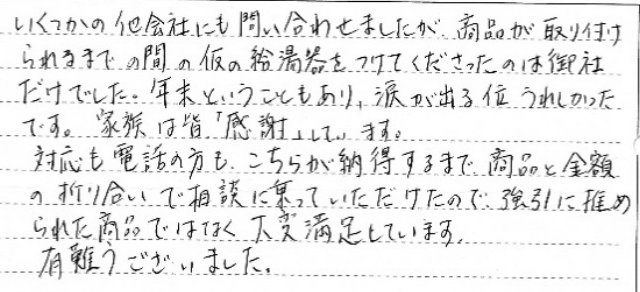 いくつかの他会社にも問い合わせましたが、商品が取り付け
られるまでの間の仮の給湯器をつけてくださったのは御社
だけでした。年末ということもあり、涙が出る位うれしかった
です。家族は皆「感謝」しています。
対応も電話の方も、こちらが納得するまで商品と金額
の折り合いで相談に乗っていただけたので、強引に推め
られた商品ではなく大変満足しています。
有難うございました。